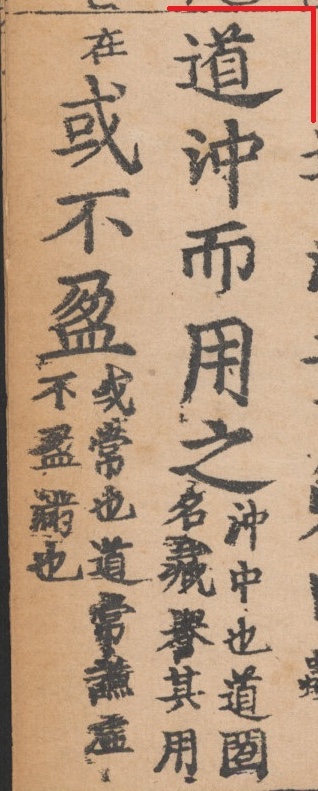 道沖而用之
沖中也道匿
名藏譽其用
在
或不盈
或常也道常謙虛
不盈滿也